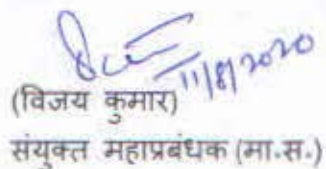 11/8/2020
(विजय कुमार)
संयुक्त महाप्रबंधक (मा.स.)